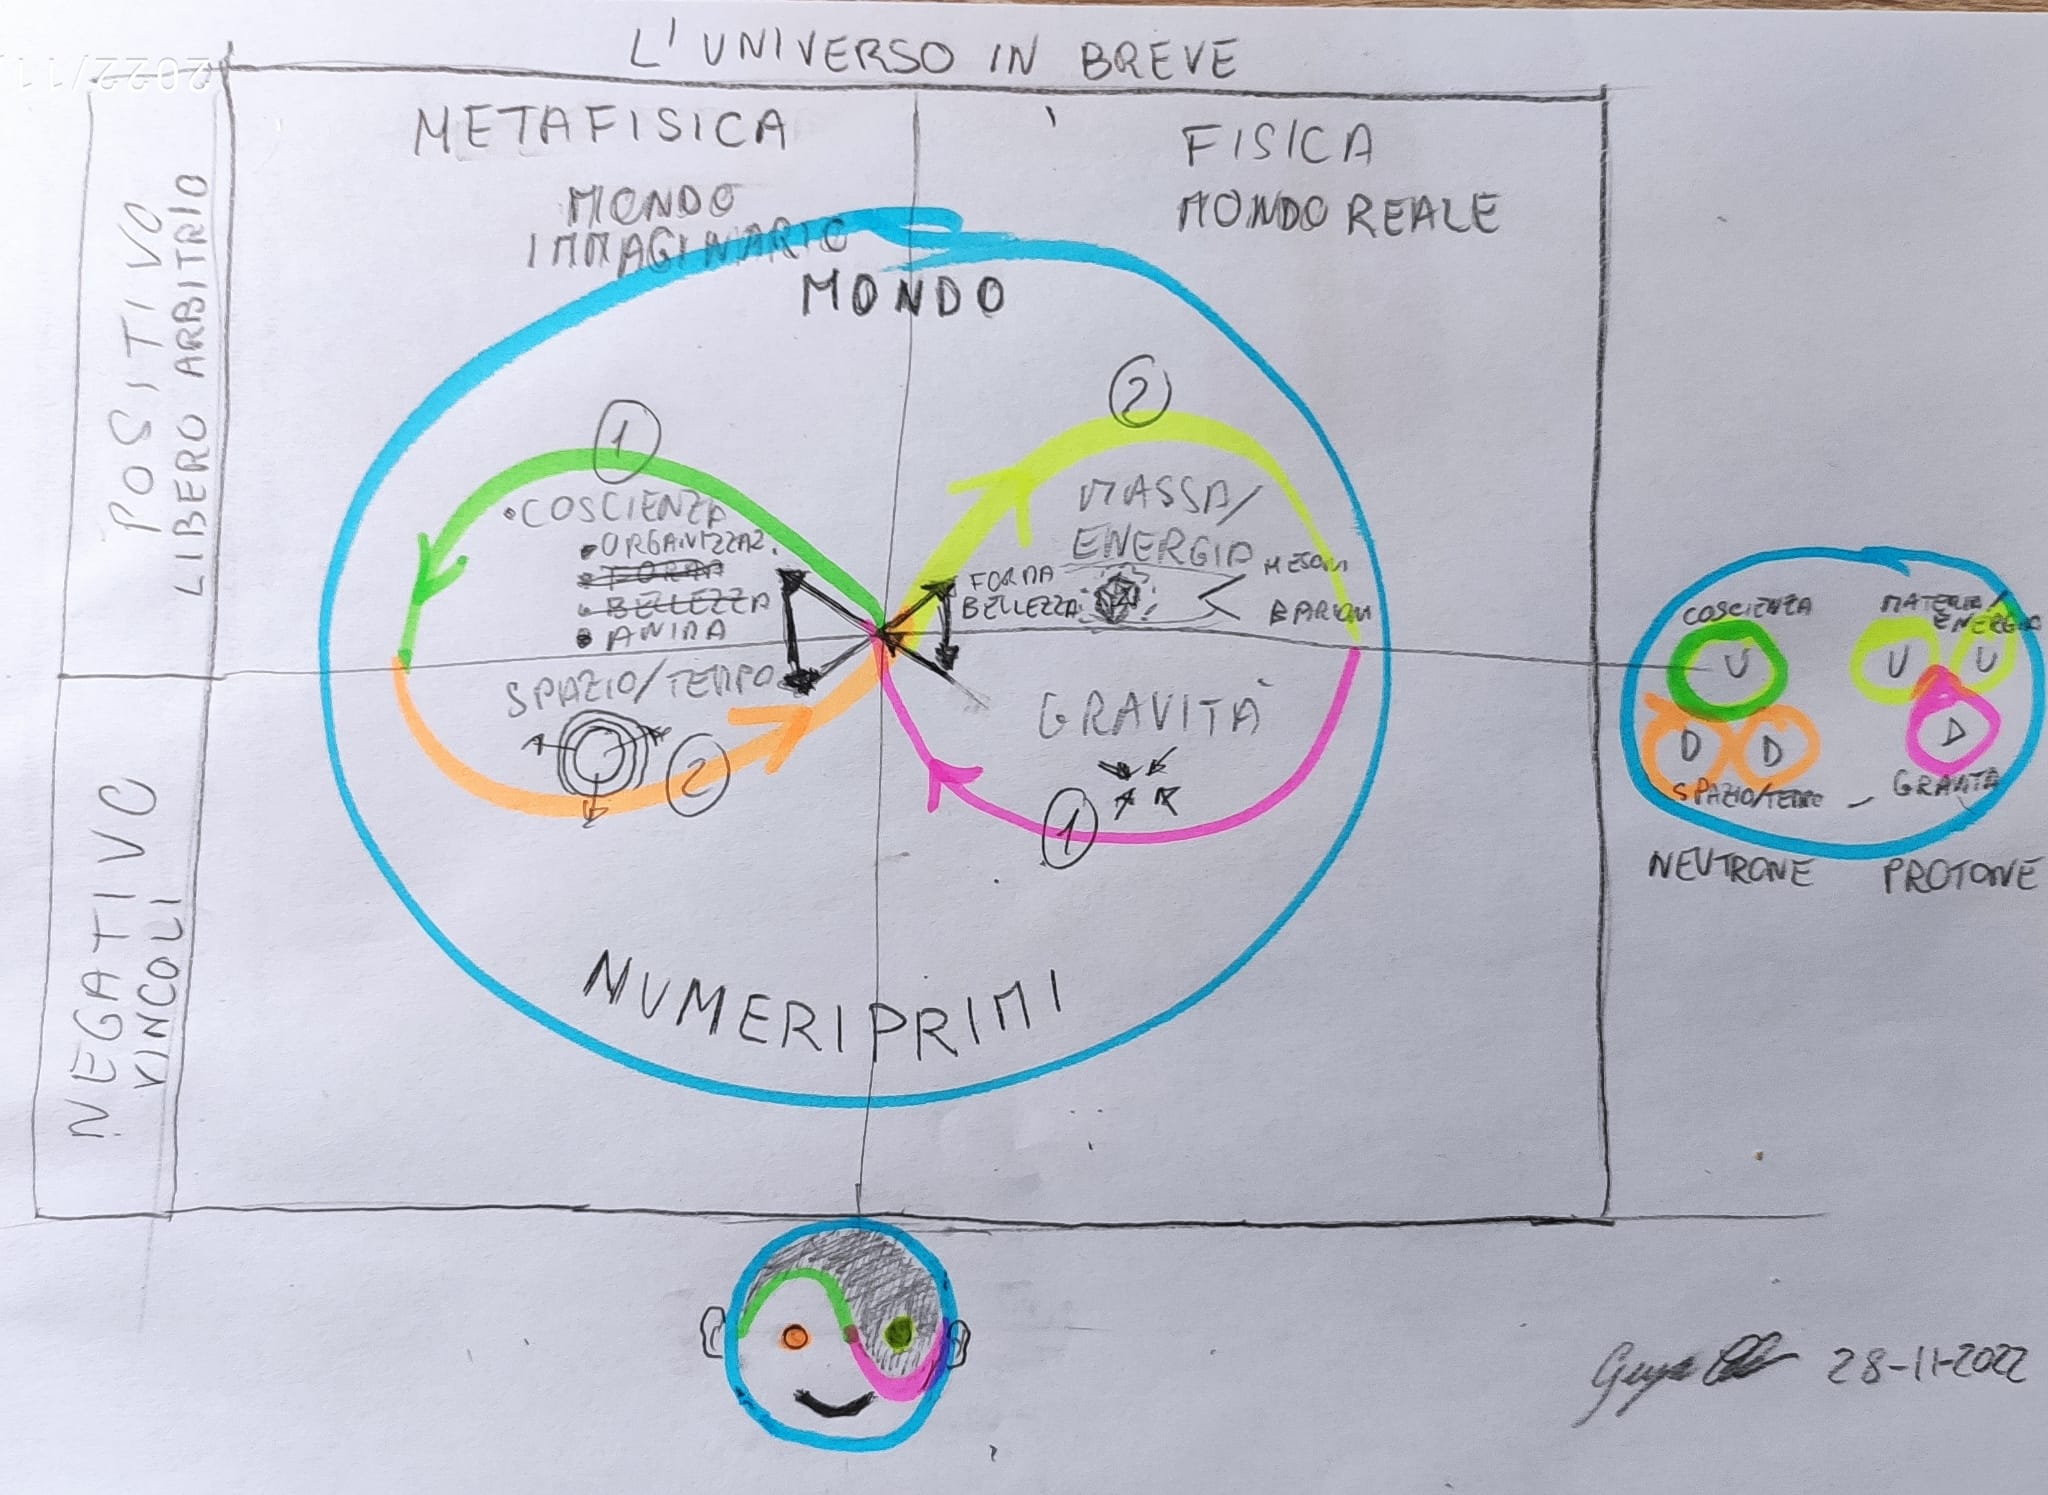 L' UNIVERSO IN BREVE
2022/11
METAFISICA
FISICA
MONDO
IMMAGINARIO
MONDO REALE
MONDO
POSITIVO
LIBERO ARBITRIO
1
2
• COSCIENZA
• ORGANIZZAZ.
• FORMA
• BELLEZZA
• ANIMA
MASSA/
ENERGIA
FORMA
BELLEZZA
MESONI
BARIONI
SPAZIO/TEMPO
GRAVITÀ
2
1
NEGATIVO
VINCOLI
NUMERI PRIMI
COSCIENZA
MATERIA/
ENERGIA
U
U
U
D
D
D
SPAZIO/TEMPO
GRAVITÀ
NEUTRONE
PROTONE
28-11-2022